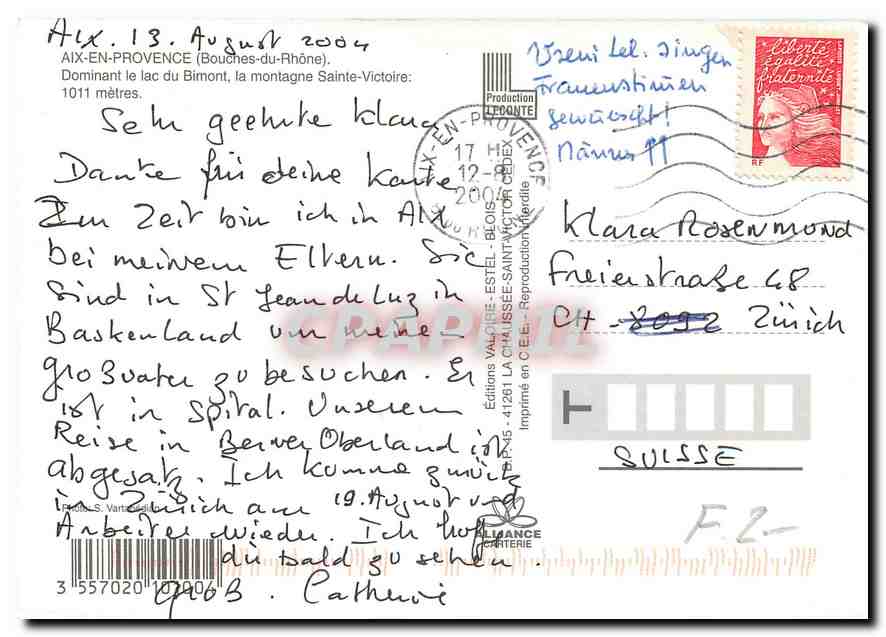 Aix. 13. August 2004
AIX-EN-PROVENCE (Bouches-du-Rhône).
Dominant le lac du Bimont, la montagne Sainte-Victoire:
1011 mètres.
Sehr geehrte Klara
Danke für deine Karte
Zur Zeit bin ich in Aix
bei meinem Eltern. Sie
sind in St Jean de Luz in
Baskenland um meinen
Großvater zu besuchen. Er
ist in Spital. Unserem
Reise in Berner Oberland ist
abgesatz. Ich komme zurück
in Zürich am 19. August und
Photo: S. Vartabedian
Arbeiter wieder. Ich hoffe
du bald zu sehen.
Gros B. Catherine
3 557020 107004
Production
LECONTE
Éditions VALOIRE - ESTEL - BLOIS
B.P. 45 - 41261 LA CHAUSSÉE-SAINT-VICTOR CEDEX
Imprimé en C.E.E. - Reproduction interdite
ALLIANCE
CARTERIE
CPAPHIL
Vreni Tel. singen
Frauenstimen
gewünscht!
Männer !!
AIX-EN-PROVENCE
17 H
12-8
2004
liberté
égalité
fraternité
RF
Klara Rosenmund
Freierstraße 48
CH - 8092 Zürich
T
SUISSE
F. 2.-